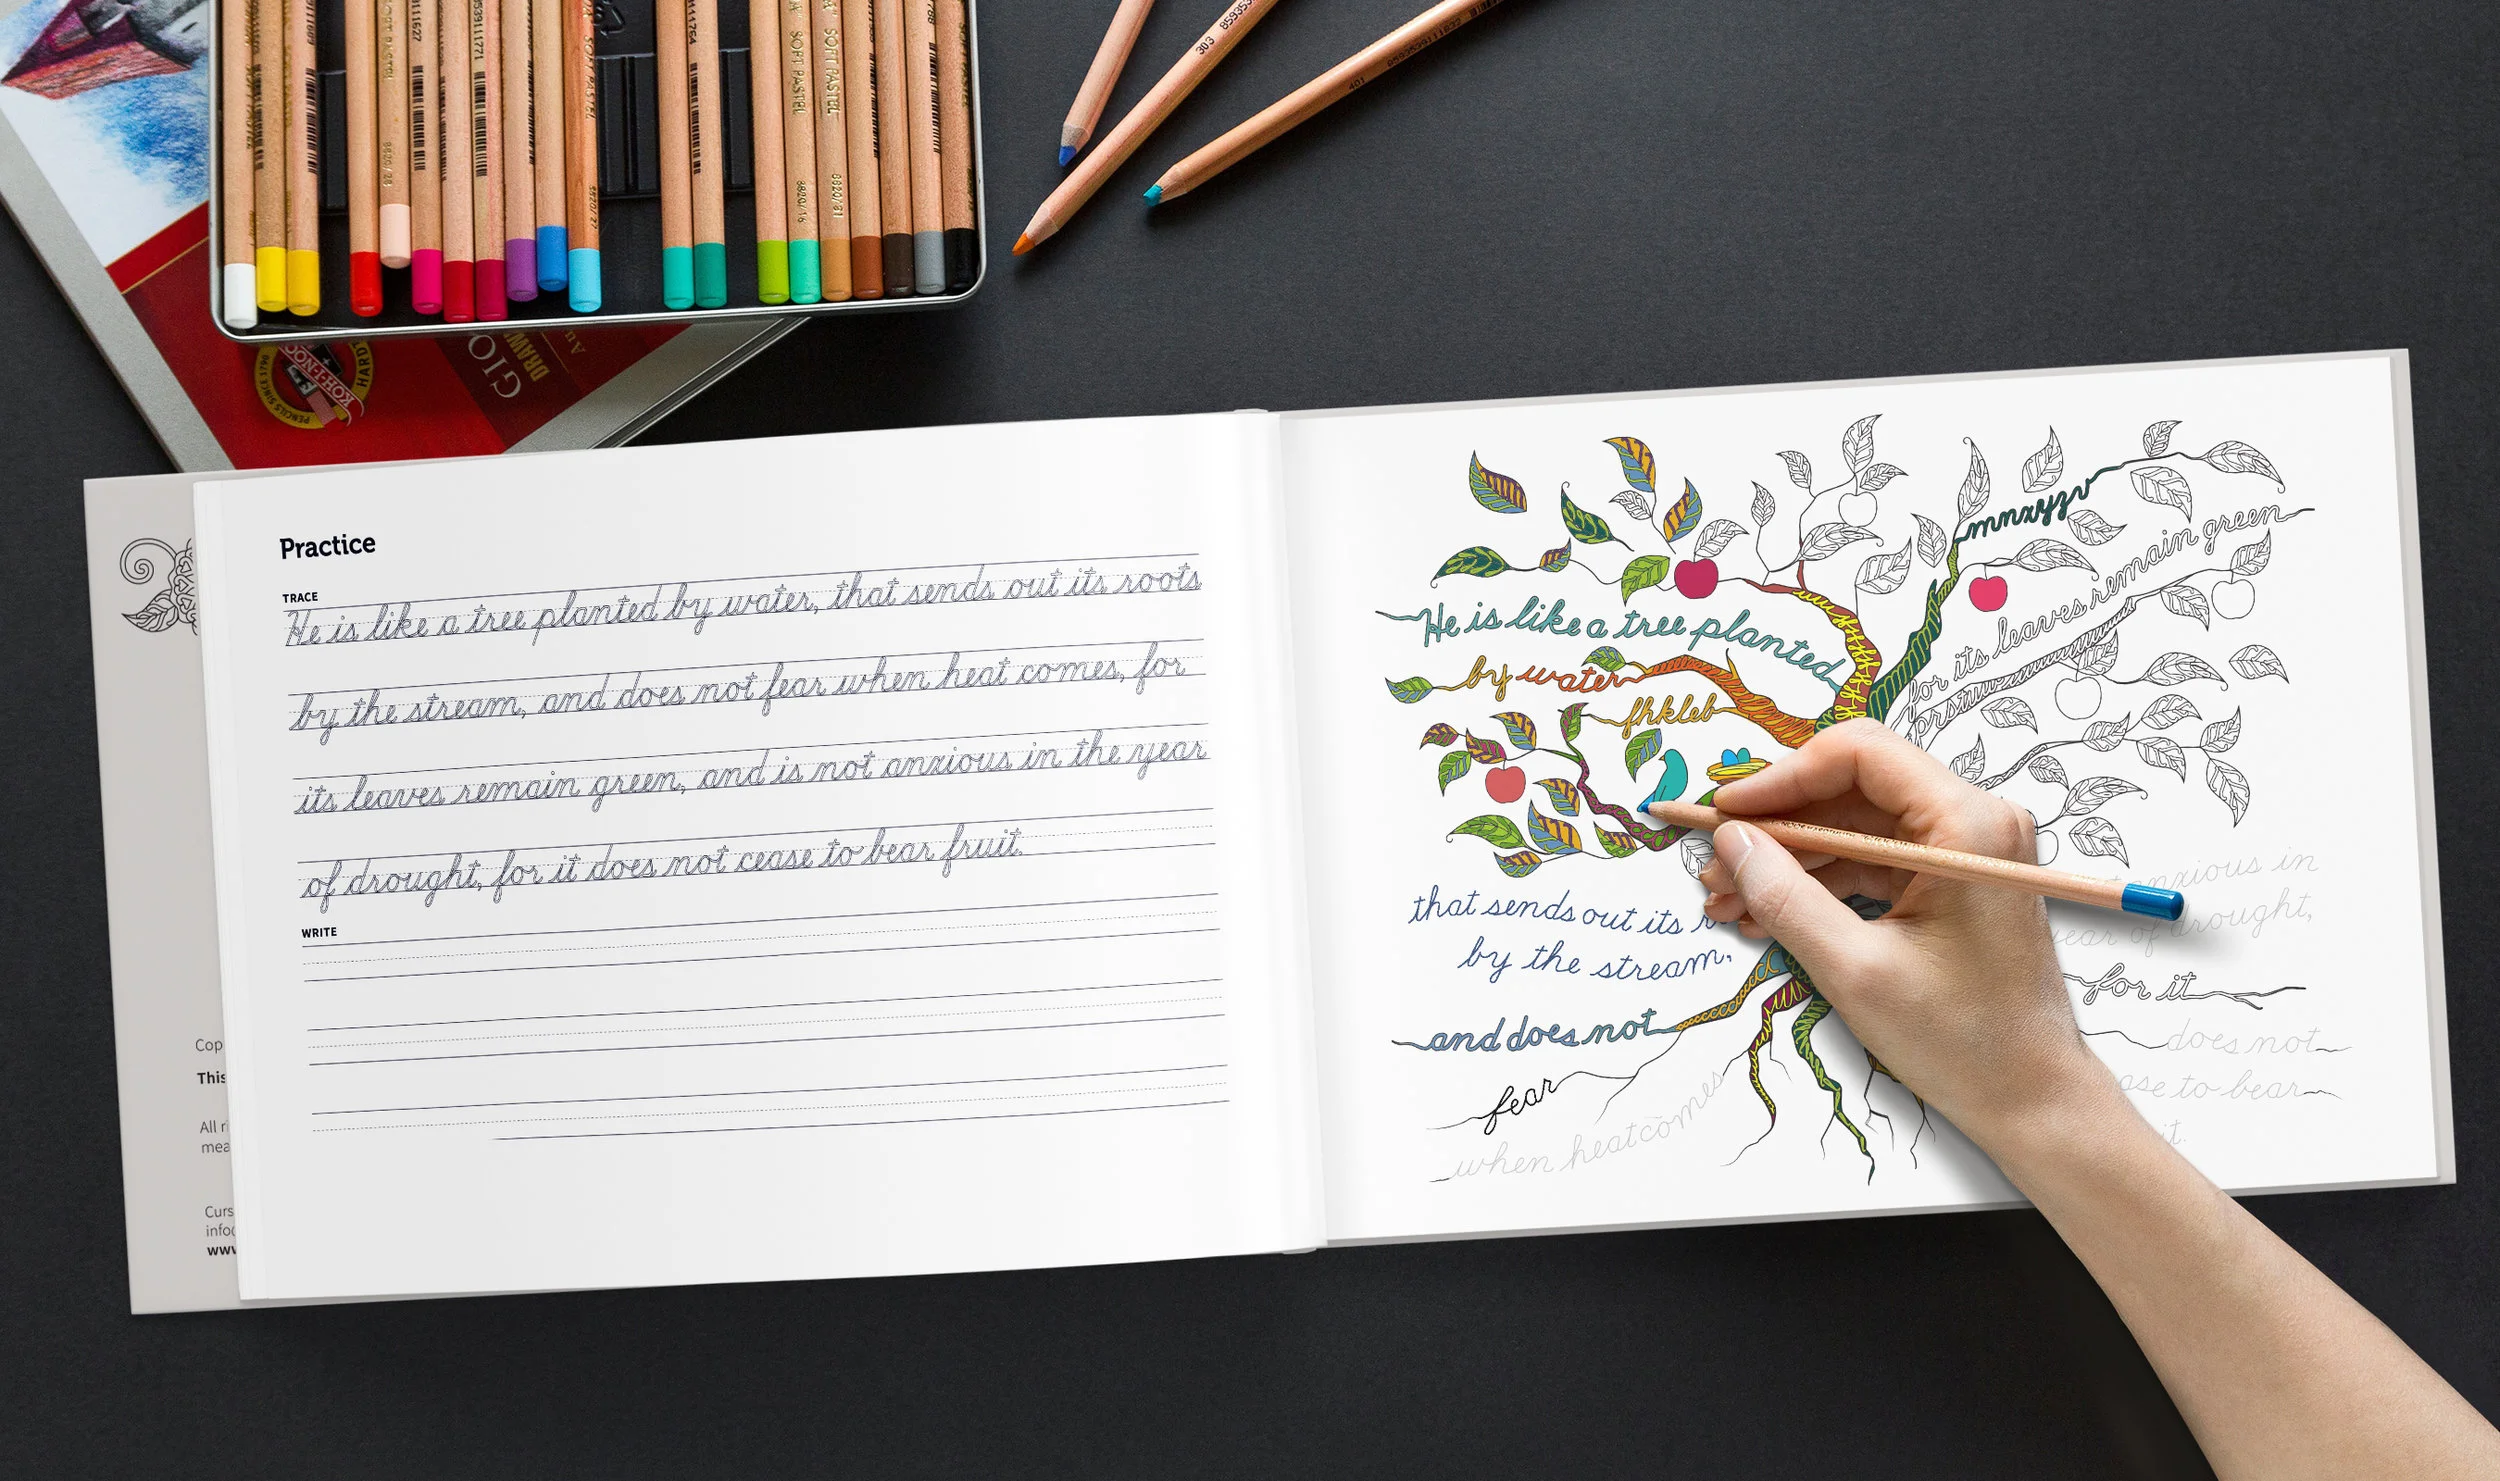 SOFT PASTEL
SOFT PASTEL
8820/16
8820/27
303
401
KOH-I-NOOR
HARDT
PENCILS SINCE 1790
GIO
DRAW
Au
Practice
TRACE
He is like a tree planted by water, that sends out its roots
by the stream, and does not fear when heat comes, for
its leaves remain green, and is not anxious in the year
of drought, for it does not cease to bear fruit.
WRITE
Cop
This
All ri
mea
Curs
info@
www
mnxyzv
He is like a tree planted
by water
fhkleb
for its leaves remain green
prstuw
that sends out its r
by the stream,
and does not
fear
when heat comes
anxious in
year of drought,
for it
does not
ase to bear
it.